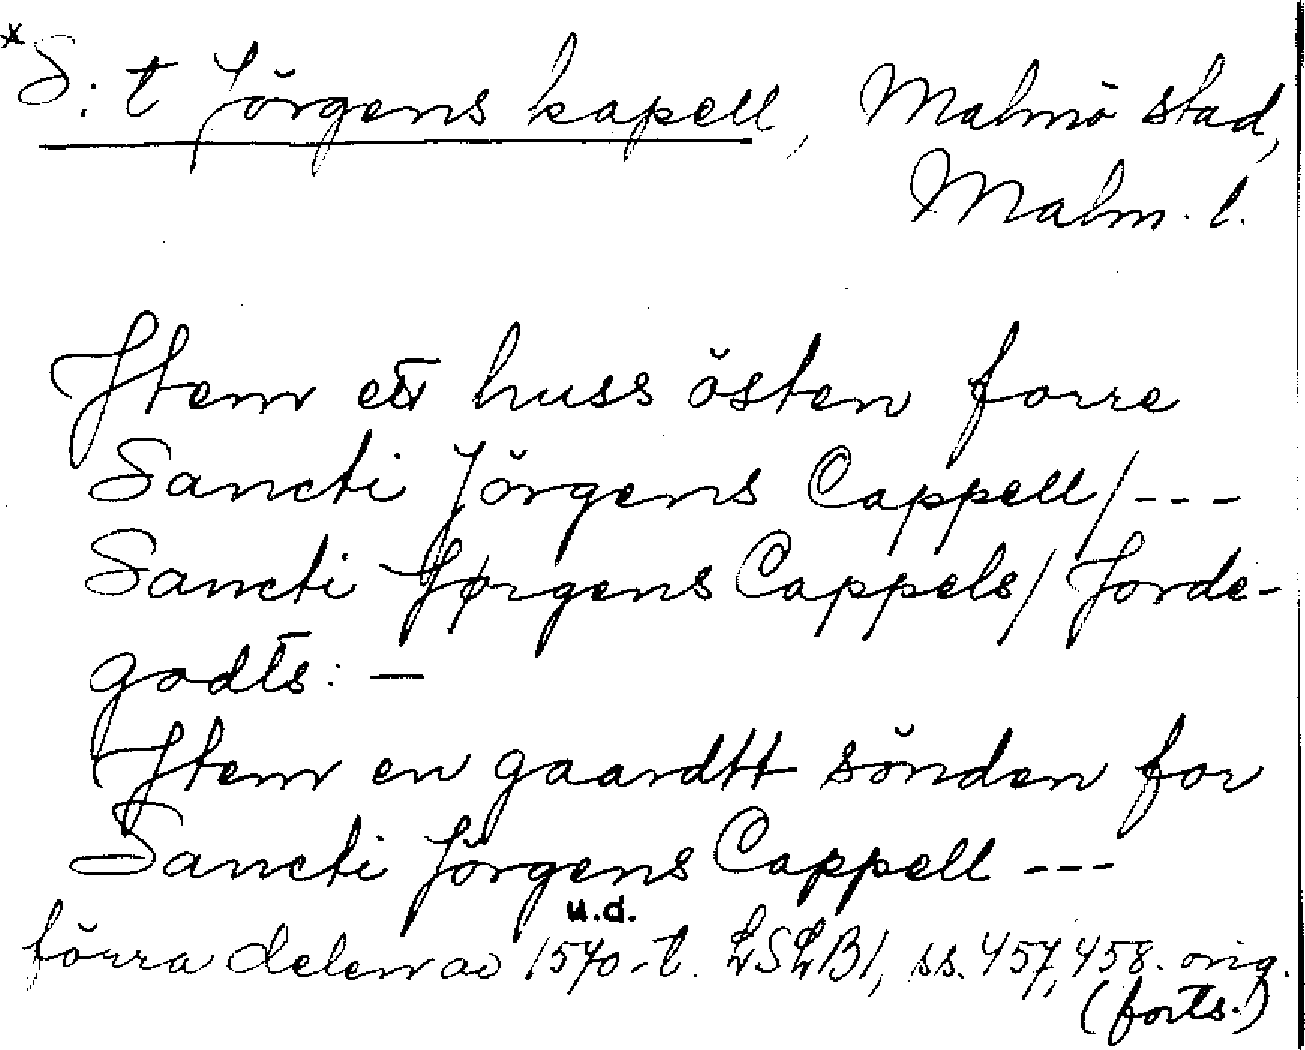 *S:t Jörgens kapell, Malmö stad,
Malm. l.
Item ett huss östen forre
Sancti Jörgens Cappell/---
Sancti Jørgens Cappels/ Jorde-
godts: —
Item en gaardtt sönden for
Sancti Jörgens Cappell ---
u.d.
förra delen av 1570-t. LSLB1, ss. 457, 458. orig.
(forts.)